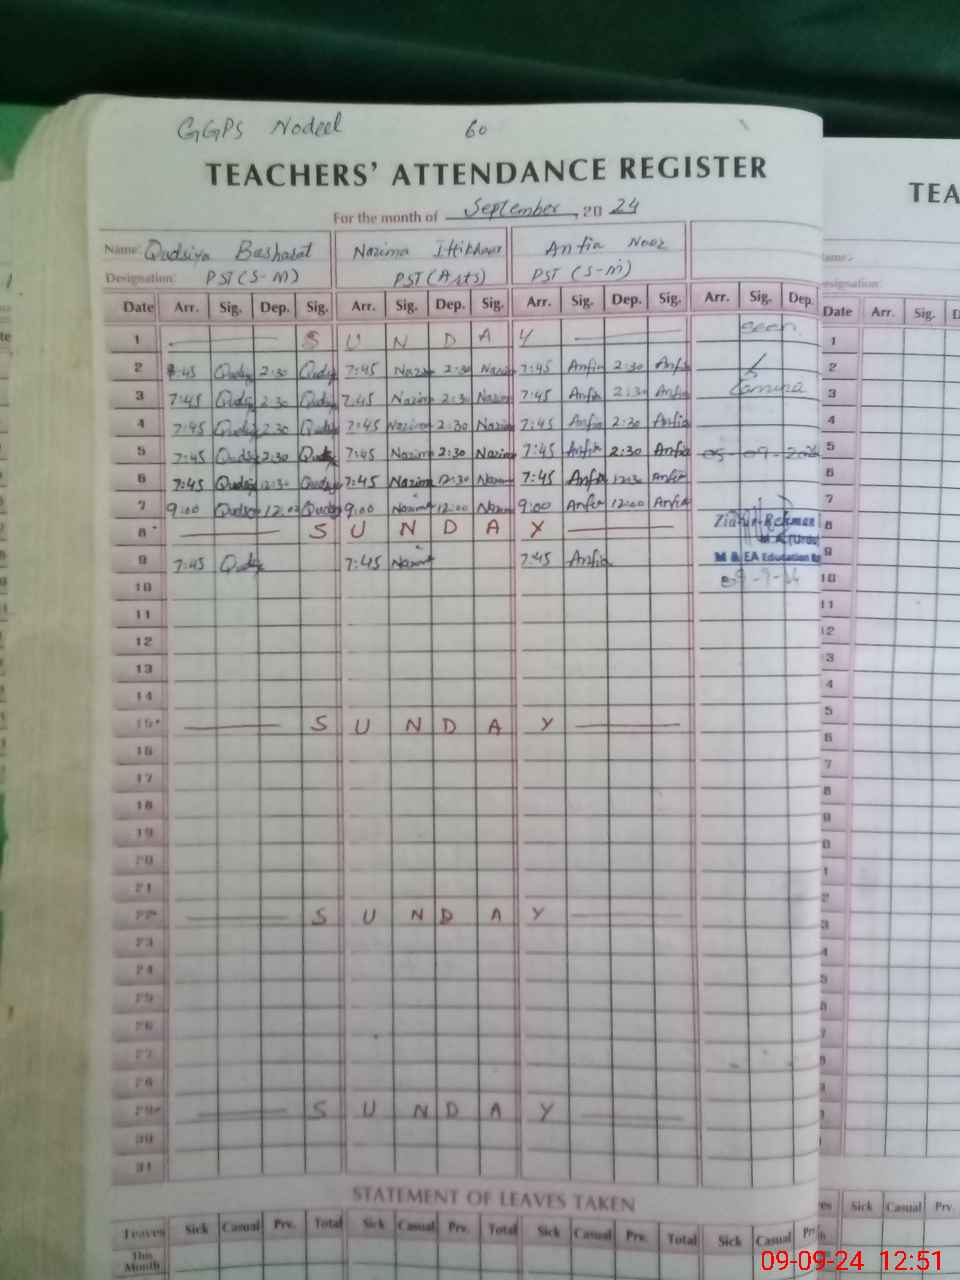 GGPS Nodeel 60
TEACHERS' ATTENDANCE REGISTER
TEA
For the month of September, 20 24
Name: Qudsiya Basharat Nazima Iftikhar Anfia Nooz
Designation: PST (S-M) PST (Arts) PST (S-M)
Date Arr. Sig. Dep. Sig. Arr. Sig. Dep. Sig. Arr. Sig. Dep. Sig. Arr. Sig. Dep. Date Arr. Sig.
1 S U N D A Y seen 1
2 7:45 2:30 7:45 2:30 7:45 Anfia 2:30 Anfia 2
3 7:45 2:30 7:45 2:30 7:45 Anfia 2:30 Anfia 3
4 7:45 2:30 7:45 2:30 7:45 Anfia 2:30 Anfia 4
5 7:45 2:30 7:45 2:30 7:45 Anfia 2:30 Anfia 05-09-2024 5
6 7:45 12:30 7:45 12:30 7:45 Anfia 12:30 Anfia 6
7 9:00 12:00 9:00 12:00 9:00 Anfia 12:00 Anfia 7
8 S U N D A Y 8
9 7:45 7:45 7:45 Anfia M & EA Education 9
10 10
11 11
12 12
13 3
14 4
15 S U N D A Y 5
16 6
17 7
18 8
19 9
20 0
21 1
22 S U N D A Y 2
23 3
24 4
25 5
26
27
28
29 S U N D A Y
30
31
STATEMENT OF LEAVES TAKEN
Leaves Sick Casual Prv. Total Sick Casual Prv. Total Sick Casual Prv. Total Sick Casual Sick Casual Prv.
This
Month
09-09-24 12:51